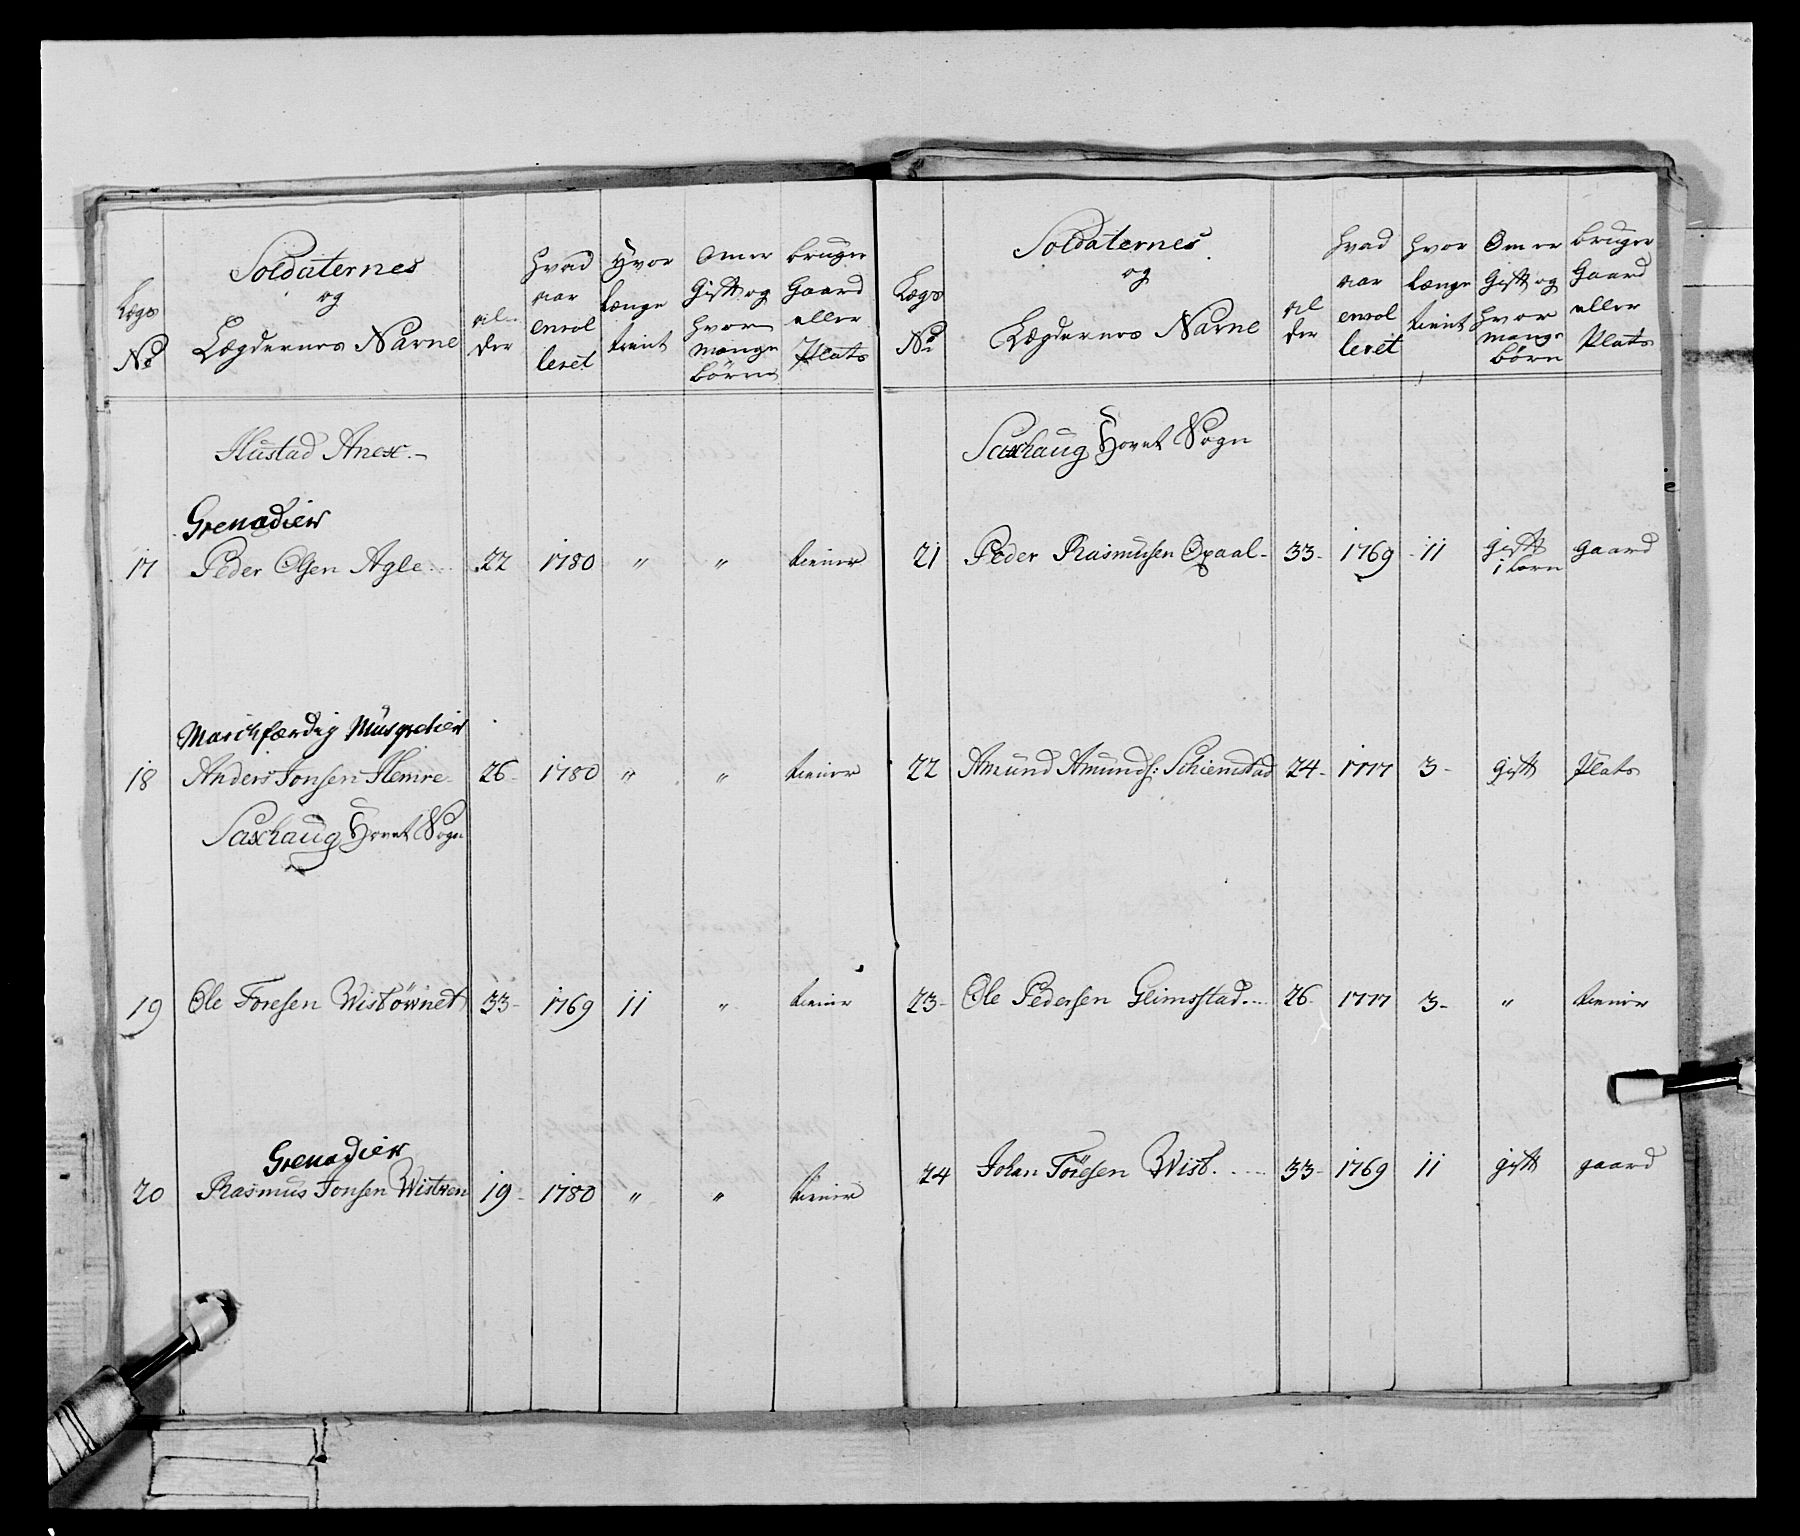 Lægs
No
Soldaternes
og
Lægdernes Nafne
al-
der
hvad
aar
enrol
leret
Hvor
Længe
tient
Om er
Gift og
hvor
mange
børn
bruger
Gaard
eller
Plats
Hustad Anex.-
Grenadier
17 Peder Olsen Agle... 22 1780 " " tiener
Marchfærdig Musqvetier
18 Anders Jonsen Hemre 26- 1780 " " tiener
Saxhaug Hovet Sogn
19 Ole Toresen Wistørinet 33- 1769 11 " tiener
Grenadier
20 Rasmus Jonsen Wistven 19- 1780 " " tiener
Lægs
No
Soldaternes
og
Lægdernes Nafne
al
der
hvad
aar
enrol
leret
hvor
Længe
tient
Om er
Gift og
hvor
mange
børn
bruger
Gaard
eller
Plats
Saxhaug Hovet Sogn
21 Peder Rasmusen Opaal- 33- 1769 11 gift
1 barn gaard
22 Amund Amunds: Schiemstad 24- 1777 3- gift Plats
23- Ole Pedersen Geimsstad.... 26- 1777 3- " tiener
24 Johan Töresen Wist. .... 33- 1769 11 gift gaard